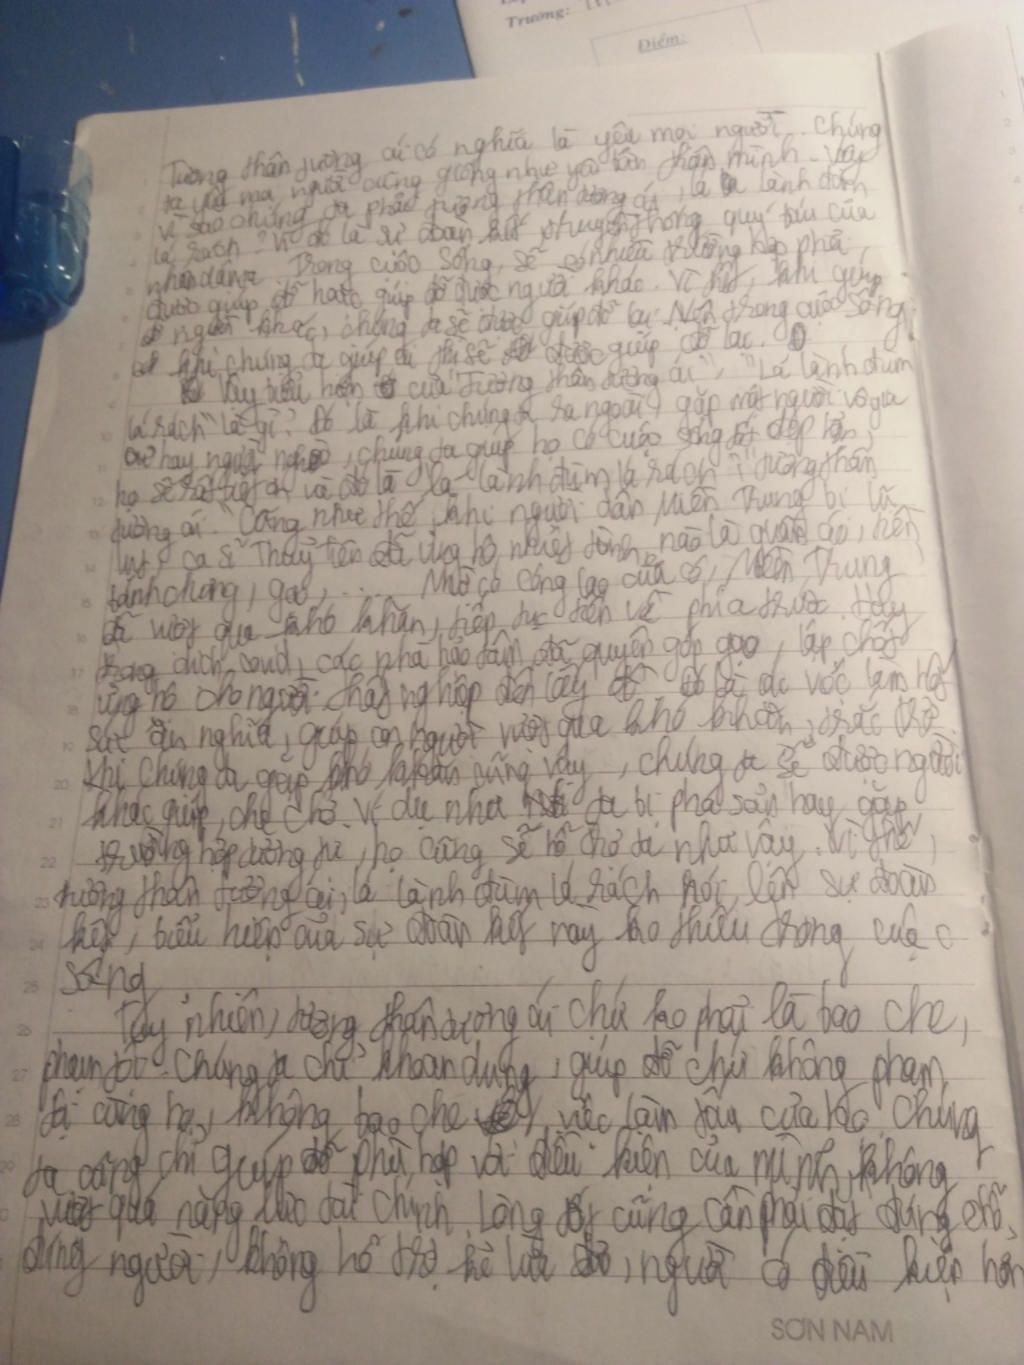 Trường:
Điểm:
Tương thân tương ái có nghĩa là yêu mọi người. Chúng
ta yêu mọi người cũng giống như yêu bản thân mình. Vậy
vì sao chúng ta phải tương thân tương ái, lá lành đùm
lá rách? Vì đó là sự đoàn kết, truyền thống quý báu của
nhân dân ta. Trong cuộc sống, sẽ có nhiều trường hợp phải
được giúp đỡ hoặc giúp đỡ được người khác. Vì thế, khi giúp
đỡ người khác, chúng ta sẽ được giúp đỡ lại. Nên trong cuộc sống,
khi chúng ta giúp đỡ thì sẽ được giúp đỡ lại.
Vậy biểu hiện của "Tương thân tương ái", "Lá lành đùm
lá rách" là gì? Đó là khi chúng ta ra ngoài, gặp một người vô gia
cư hay người nghèo, chúng ta giúp họ có cuộc sống tốt đẹp hơn,
họ sẽ rất biết ơn và đó là "Lá lành đùm lá rách", "tương thân
tương ái". Cũng như thế, khi người dân Miền Trung bị lũ
lụt, ca sĩ Thuỷ Tiên đã ủng hộ nhiệt tình, nào là quần áo, tiền,
bánh chưng, gạo, .... Nhờ có công lao của cô, Miền Trung
đã vượt qua khó khăn, tiếp tục tiến về phía trước. Hay
trong dịch covid, các nhà hảo tâm đã quyên góp gạo, lập chốt
ủng hộ cho người thất nghiệp đến lấy đồ. Đó là các việc làm hết
sức ân nghĩa, giúp con người vượt qua khó khăn, trắc trở
Khi chúng ta gặp khó khăn cũng vậy, chúng ta sẽ được người
khác giúp, che chở. Ví dụ như ta bị phá sản hay gặp
trường hợp tương tự, họ cũng sẽ hỗ trợ ta như vậy. Vì thế,
tương thân tương ái, lá lành đùm lá rách nói lên sự đoàn
kết, biểu hiện của sự đoàn kết này ko thiếu trong cuộc
sống
Tuy nhiên, tương thân tương ái chứ ko phải là bao che,
phạm tội. Chúng ta chỉ khoan dung, giúp đỡ chứ không phạm
tội cùng họ, không bao che việc làm xấu của họ. Chúng
ta cũng chỉ giúp đỡ phù hợp với điều kiện của mình, không
vượt quá năng lực tài chính. Lòng tốt cũng cần phải đặt đúng chỗ,
đúng người, không hỗ trợ kẻ lừa đảo, người có điều kiện hơn
SƠN NAM